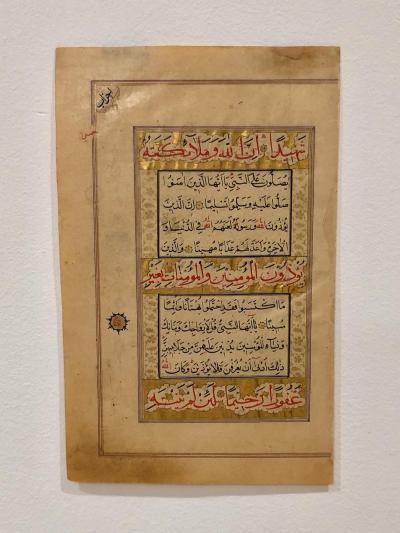 احزاب
شهيدا ان الله وملائكته
يصلون على النبي يا ايها الذين امنوا
صلوا عليه وسلموا تسليما ان الذين
يؤذون الله ورسوله لعنهم الله في الدنيا و
الاخرة واعد لهم عذابا مهينا والذين
يؤذون المؤمنين والمؤمنات بغير
ما اكتسبوا فقد احتملوا بهتانا واثما
مبينا يا ايها النبي قل لازواجك وبناتك
ونساء المؤمنين يدنين عليهن من جلابيبهن
ذلك ادنى ان يعرفن فلا يؤذين وكان الله
غفورا رحيما لئن لم ينته